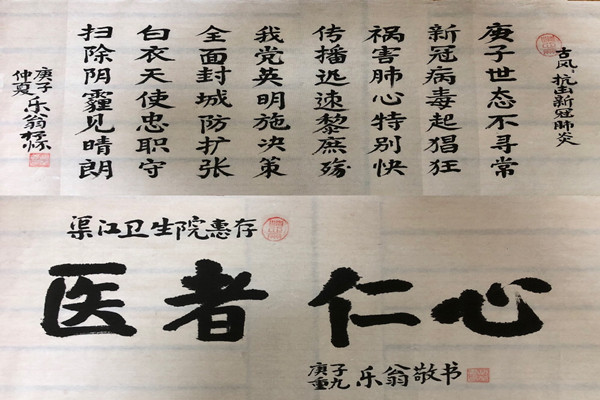 古风：抗击新冠肺炎
庚子世态不寻常
新冠病毒起猖狂
祸害肺心特别快
传播迅速黎庶殇
我党英明施决策
全面封城防扩张
白衣天使忠职守
扫除阴霾见晴朗
庚子仲夏乐翁抒怀
渠江卫生院惠存
医者仁心
庚子重九乐翁敬书